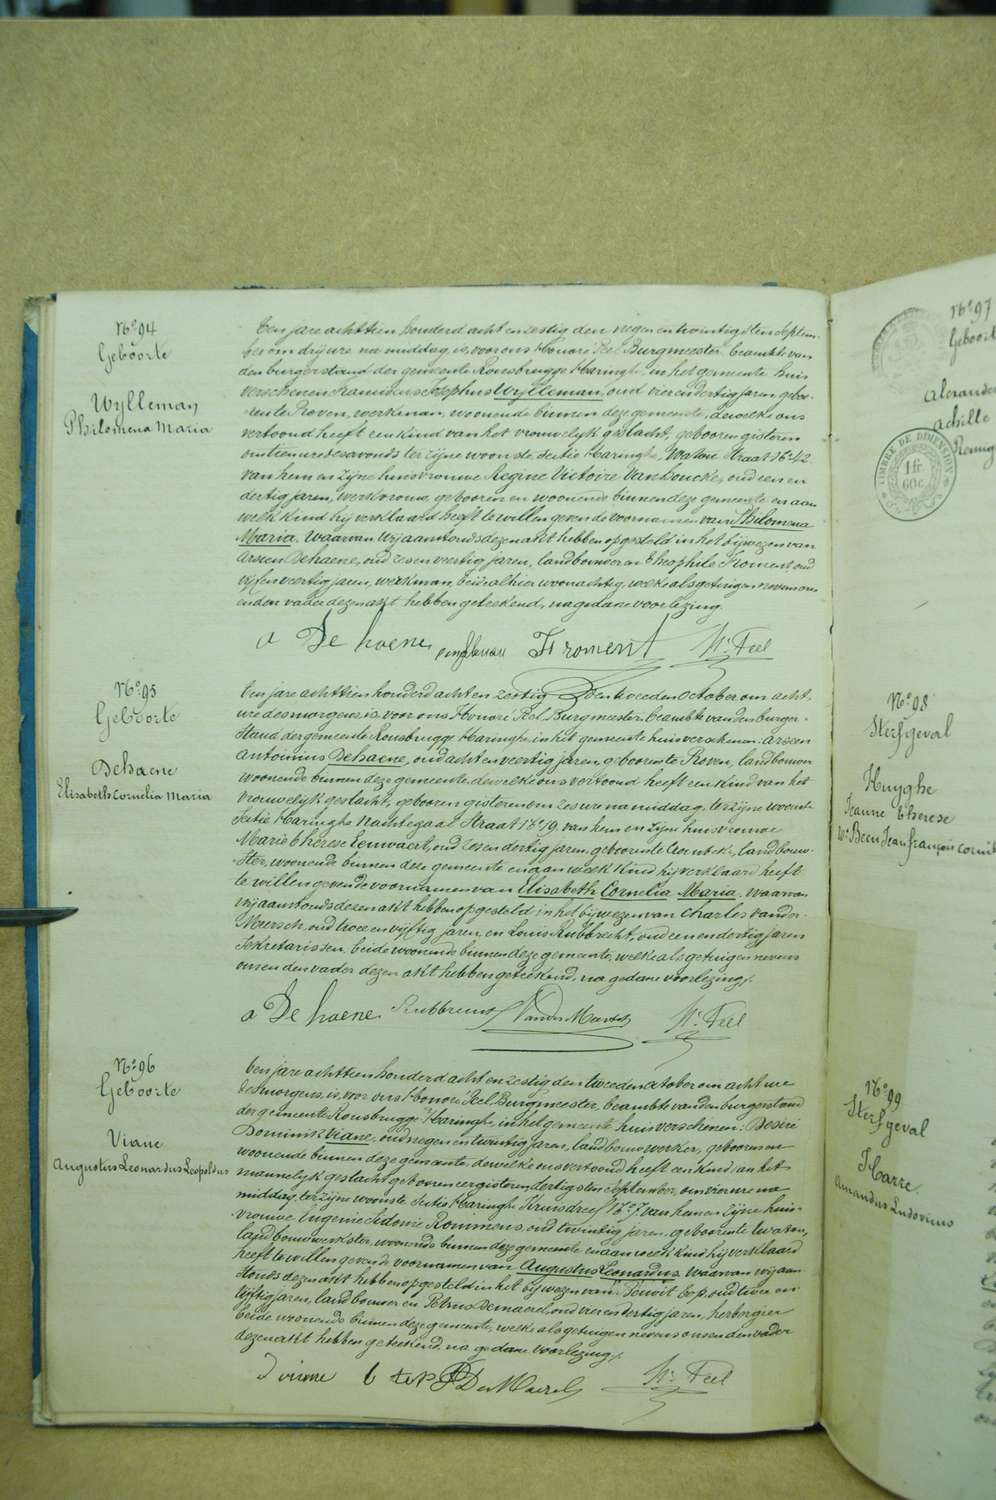 N° 94
Geboorte
Wylleman
Philomena Maria
Ten jare achttien honderd acht en zestig den negen en twintigsten Septem-
ber om drij ure na middag, is, voor ons Honoré Feel Burgmeester, beambte van
den burgerstand der gemeente Rousbrugge Haringhe, in het gemeente huis
verschenen Franciscus Josephus Wylleman, oud vier en dertig jaren, gebo-
ren te Proven, werkman, woonende binnen deze gemeente, dewelke ons
vertoond heeft een kind van het vrouwelyk geslacht, geboren gisteren
om tien ure des avonds ter zyne woonste Sectie Haringhe, Watone Straat N° 42
van hem en zyne huisvrouwe Regine Victoire Vanhoucke, oud een en
dertig jaren, werkvrouw, geboren en woonende binnen deze gemeente en aan
welk kind hy verklaard heeft te willen geven de voornamen van Philomena
Maria, Waarvan wy aanstonds dezen akt hebben opgesteld in het bywezen van
Arseen Dehaene, oud zes en veertig jaren, landbouwer en Theophile Froment oud
vyf en veertig jaren, werkman, beide alhier woonachtig, welke als getuigen nevens ons
en den vader dezen akt hebben geteekend, na gedane voorlezing.
a De haene Froment H. Feel
N° 95
Geboorte
Dehaene
Elisabeth Cornelia Maria
Ten jare achttien honderd acht en zestig den tweeden October om acht
ure des morgens, is, voor ons Honoré Feel, Burgmeester, beambte van den burger-
stand der gemeente Rousbrugge Haringhe, in het gemeente huis verschenen: Arseen
Antoinius Dehaene, oud acht en veertig jaren, geboren te Proven, landbouwer
woonende binnen deze gemeente dewelke ons vertoond heeft een kind van het
vrouwelyk geslacht, geboren gisteren om zes ure na middag, ter zyne woonst
Sectie Haringhe Nachtegaal Straat N° 19, van hem en zyne huisvrouwe
Marie Thérèse Eeuwaert, oud zes en dertig jaren, geboren te Crombeke, landbouw-
ster, woonende binnen deze gemeente en aan welk kind hy verklaard heeft
te willen geven de voornamen van Elisabeth Cornelia Maria, Waarvan
wy aanstonds dezen akt hebben opgesteld in het bywezen van Charles Vander-
Meersch, oud twee en vyftig jaren, en Louis Rubbrecht, oud een en dertig jaren
Sekretarissen, beide woonende binnen deze gemeente, welke als getuigen nevens
ons en den vader dezen akt hebben geteekend, na gedane voorlezing.
a De haene Rubbrecht Vander Meersch H. Feel
N° 96
Geboorte
Viane
Augustus Leonardus Leopoldus
Ten jare achttien honderd acht en zestig den tweeden October om acht ure
des morgens, is, voor ons Honoré Feel Burgmeester, beambte van den burgerstand
der gemeente Rousbrugge Haringhe, in het gemeente huis verschenen: Desiré
Dominik Viane, oud negen en twintig jaren, landbouwwerker, geboren en
woonende binnen deze gemeente, dewelke ons vertoond heeft een kind van het
mannelyk geslacht geboren eergisteren dertigsten September, om vier ure na
middag, ter zyne woonste Sectie Haringhe Kruisdreef N° 7 van hem en zyne huis-
vrouwe Eugenie Sidonie Rommens, oud twintig jaren, geboren te Watou,
landbouwwerkster, woonende binnen deze gemeente en aan welk kind hy verklaard
heeft te willen geven de voornamen van Augustus Leonardus Waarvan wy aan-
stonds dezen akt hebben opgesteld in het bywezen van Benoit Tep, oud twee en
vyftig jaren, landbouwer en Petrus Demaerel, oud vier en dertig jaren, herbergier
beide woonende binnen deze gemeente, welke als getuigen nevens ons en den vader
dezen akt hebben geteekend, na gedane voorlezing.
D viane b tep P De Maerel H. Feel
N° 97
Geboort
Alexander
Achille
Remig
TIMBRE DE DIMENSION
1 fr
60 c.
N° 98
Sterfgeval
Huyghe
Jeanne Thérèse
We Been Jean François Cornil
N° 99
Sterfgeval
Harre
Amandus Ludovicus